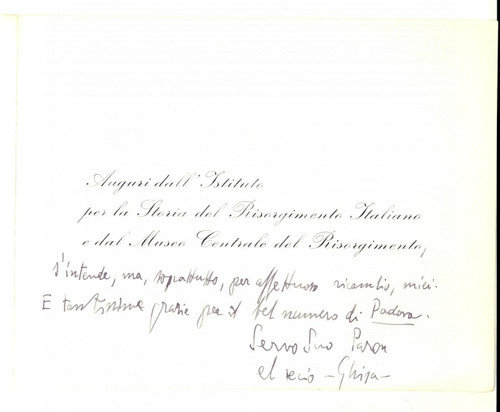 Auguri dall'Istituto
per la Storia del Risorgimento Italiano
e dal Museo Centrale del Risorgimento,
s'intende, ma, soprattutto, per affettuoso ricambio, miei.
E tantissime grazie per il bel numero di Padova.
Servo Suo Paron
el vecio - Ghisa -